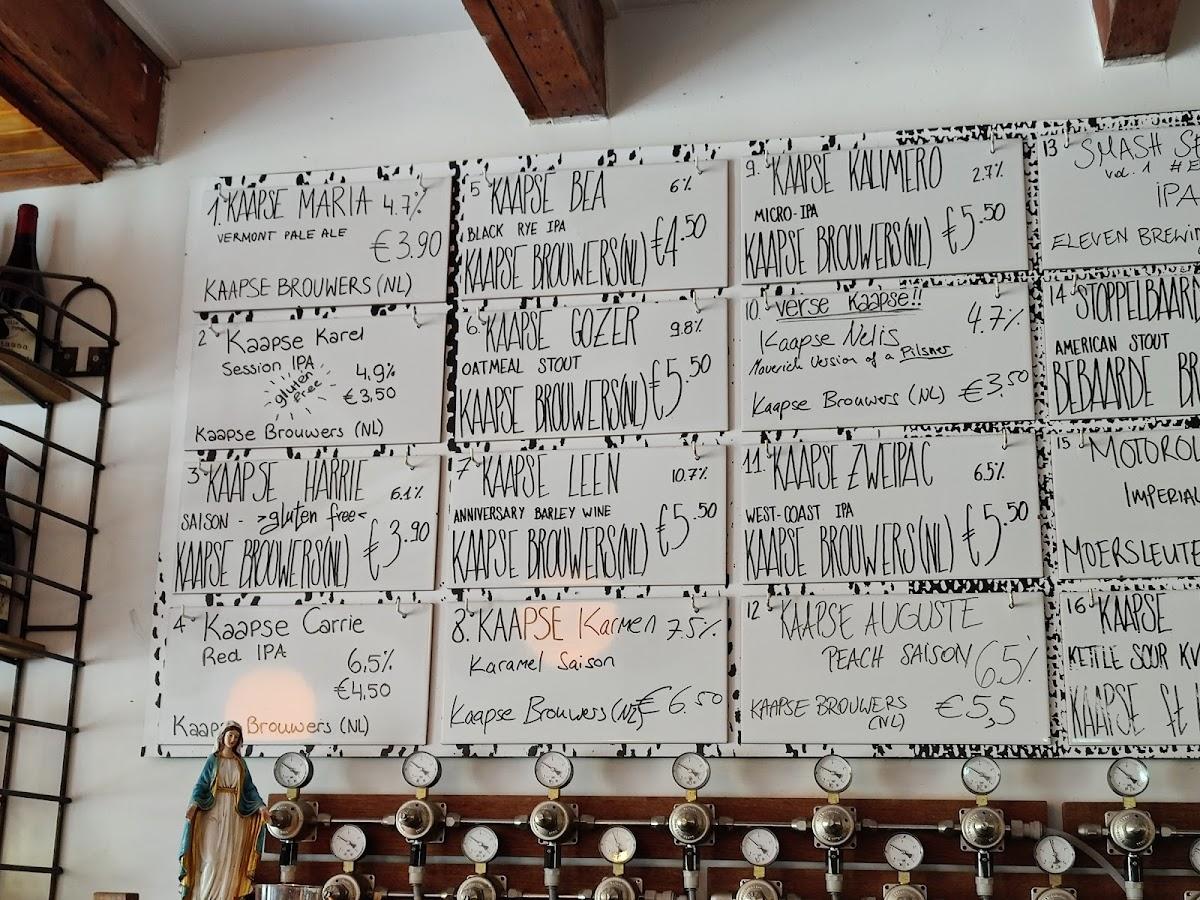 1. KAAPSE MARIA 4.7%
VERMONT PALE ALE
€3.90
KAAPSE BROUWERS (NL)
2 Kaapse Karel
Session IPA
gluten free
4,9%
€3,50
Kaapse Brouwers (NL)
3 KAAPSE HARRIE 6.1%
SAISON - >gluten free<
KAAPSE BROUWERS (NL) €3.90
4 Kaapse Carrie
Red IPA
6,5%
€4,50
Kaapse Brouwers (NL)
5 KAAPSE BEA 6%
BLACK RYE IPA
KAAPSE BROUWERS (NL) €4.50
6 KAAPSE GOZER 9.8%
OATMEAL STOUT
KAAPSE BROUWERS (NL) €5.50
7 KAAPSE LEEN 10.7%
ANNIVERSARY BARLEY WINE
KAAPSE BROUWERS (NL) €5.50
8. KAAPSE Karmen 7.5%
Karamel Saison
Kaapse Brouwers (NL) €6.50
9. KAAPSE KALIMERO 2.7%
MICRO-IPA
KAAPSE BROUWERS (NL) €5.50
10. verse Kaapse!!
Kaapse Nelis 4.7%
Maverick Version of a Pilsner
Kaapse Brouwers (NL) €3.50
11. KAAPSE ZWEIPAC 6.5%
WEST-COAST IPA
KAAPSE BROUWERS (NL) €5.50
12 KAAPSE AUGUSTE
PEACH SAISON 6.5%
KAAPSE BROUWERS
(NL)
€5,5
13 SMASH
vol. 1
IPA
ELEVEN
14 STOPPELBAARD
AMERICAN STOUT
BEBAARDE
15 MOTOROL
IMPERIAL
MOERSLEUTE
16 KAAPSE
KETTLE SOUR
KAAPSE